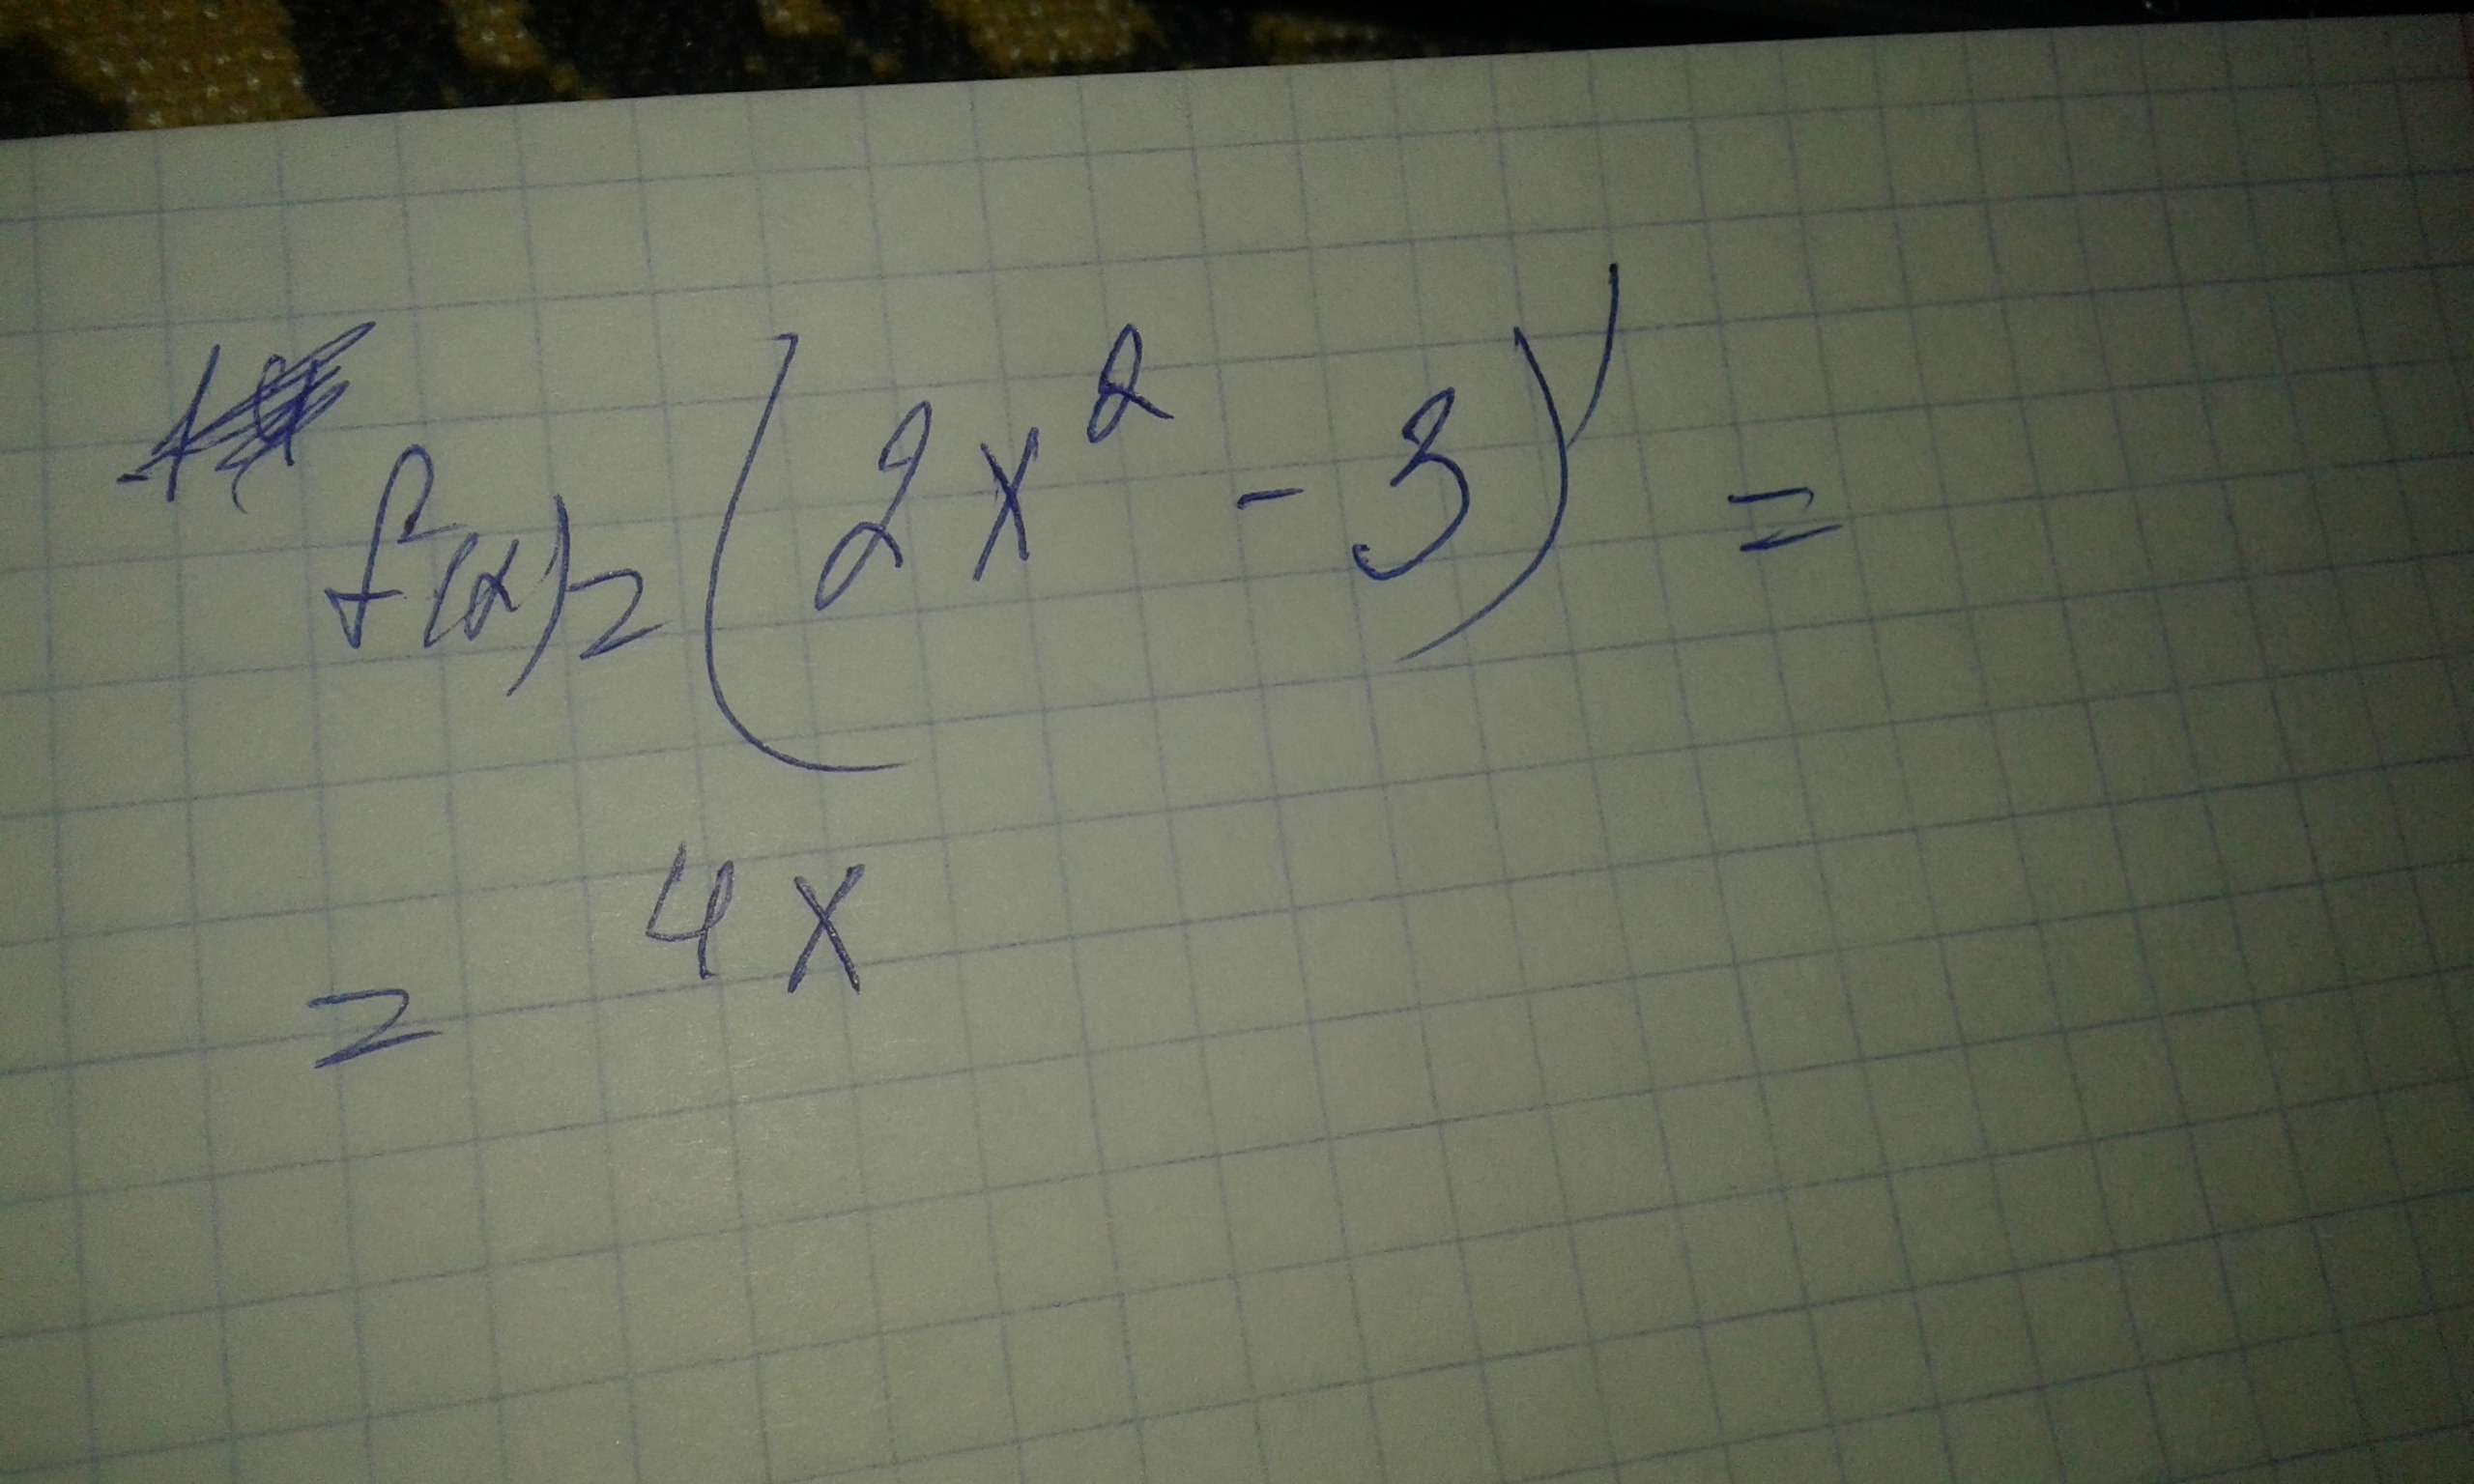 f(x) = (2x² - 3)' =
= 4x